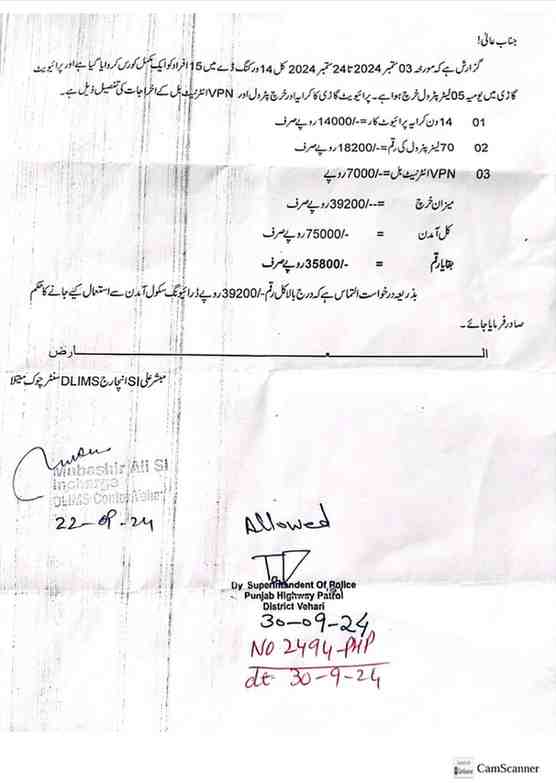 جناب عالی!
گزارش ہے کہ مورخہ 03 ستمبر 2024 تا 24 ستمبر 2024 کل 14 ورکنگ ڈے میں 15 افراد کو ایک مکمل کورس کروایا گیا ہے اور پرائیویٹ
گاڑی میں یومیہ 05 لیٹر پٹرول خرچ ہوا ہے۔ پرائیویٹ گاڑی کا کرایہ اور خرچ پٹرول اور VPN انٹرنیٹ بل کے اخراجات کی تفصیل ذیل ہے۔
01 14 دن کرایہ پرائیوٹ کار =/-14000 روپے صرف
02 70 لیٹر پٹرول کی رقم =/-18200 روپے صرف
03 VPN انٹرنیٹ بل =/-7000 روپے
میزان خرچ =/--39200 روپے صرف
کل آمدن = /-75000 روپے صرف
بقایا رقم = /-35800 روپے صرف
بذریعہ درخواست التماس ہے کہ درج بالا کل رقم /-39200 روپے ڈرائیونگ سکول آمدن سے استعمال کیے جانے کا حکم
صادر فرمایا جائے۔
الــــــــــــــــــــــــــارض
مبشر علی SI انچارج DLIMS سنٹر چوک میتلا
Mubashir Ali SI
Incharge
DLIMS Center
22-09-24
Allowed
Dy Superintendent Of Police
Punjab Highway Patrol
District Vehari
30-09-24
NO 2494-PHP
dt 30-9-24
CamScanner